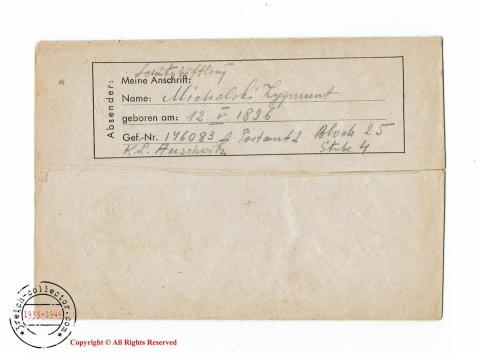 Schutzhäftling
Absender:
Meine Anschrift:
Name: Michalski Zygmunt
geboren am: 12 V. 1896
Gef.-Nr. 176083 Postamt 2 Block 25
K.L. Auschwitz Stube 4
3reich-collector.com
1933-1945
Copyright © All Rights Reserved